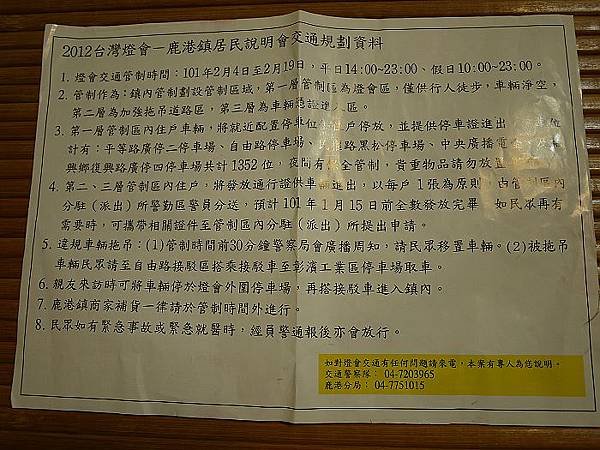 2012台灣燈會－鹿港鎮居民說明會交通規劃資料
1. 燈會交通管制時間：101年2月4日至2月19日，平日14:00~23:00、假日10:00~23:00。
2. 管制作為：鎮內管制劃設管制區域，第一層管制區為燈會區，僅供行人徒步，車輛淨空，
第二層為加強拖吊道路區，第三層為車輛憑證進入區。
3. 第一層管制區內住戶車輛，將就近配置停車位 住戶停放，並提供停車證進出 位
計有：平等路廣停二停車場、自由路停車場、 路黑松停車場、中央廣播電
興鄉復興路廣停四停車場共計1352位，夜間有 全管制，貴重物品請勿放置
4. 第二、三層管制區內住戶，將發放通行證供車輛進出，以每戶1張為原則，由管制區內
分駐（派出）所警勤區警員分送，預計101年1月15日前全數發放完畢 如民眾再有
需要時，可攜帶相關證件至管制區內分駐（派出）所提出申請。
5. 違規車輛拖吊：(1)管制時間前30分鐘警察局會廣播周知，請民眾移置車輛。(2)被拖吊
車輛民眾請至自由路接駁區搭乘接駁車至彰濱工業區停車場取車。
6. 親友來訪時可將車輛停於燈會外圍停車場，再搭接駁車進入鎮內。
7. 鹿港鎮商家補貨一律請於管制時間外進行。
8. 民眾如有緊急事故或緊急就醫時，經員警通報後亦會放行。
如對燈會交通有任何問題請來電，本案有專人為您說明。
交通警察隊： 04-7203965
鹿港分局： 04-7751015